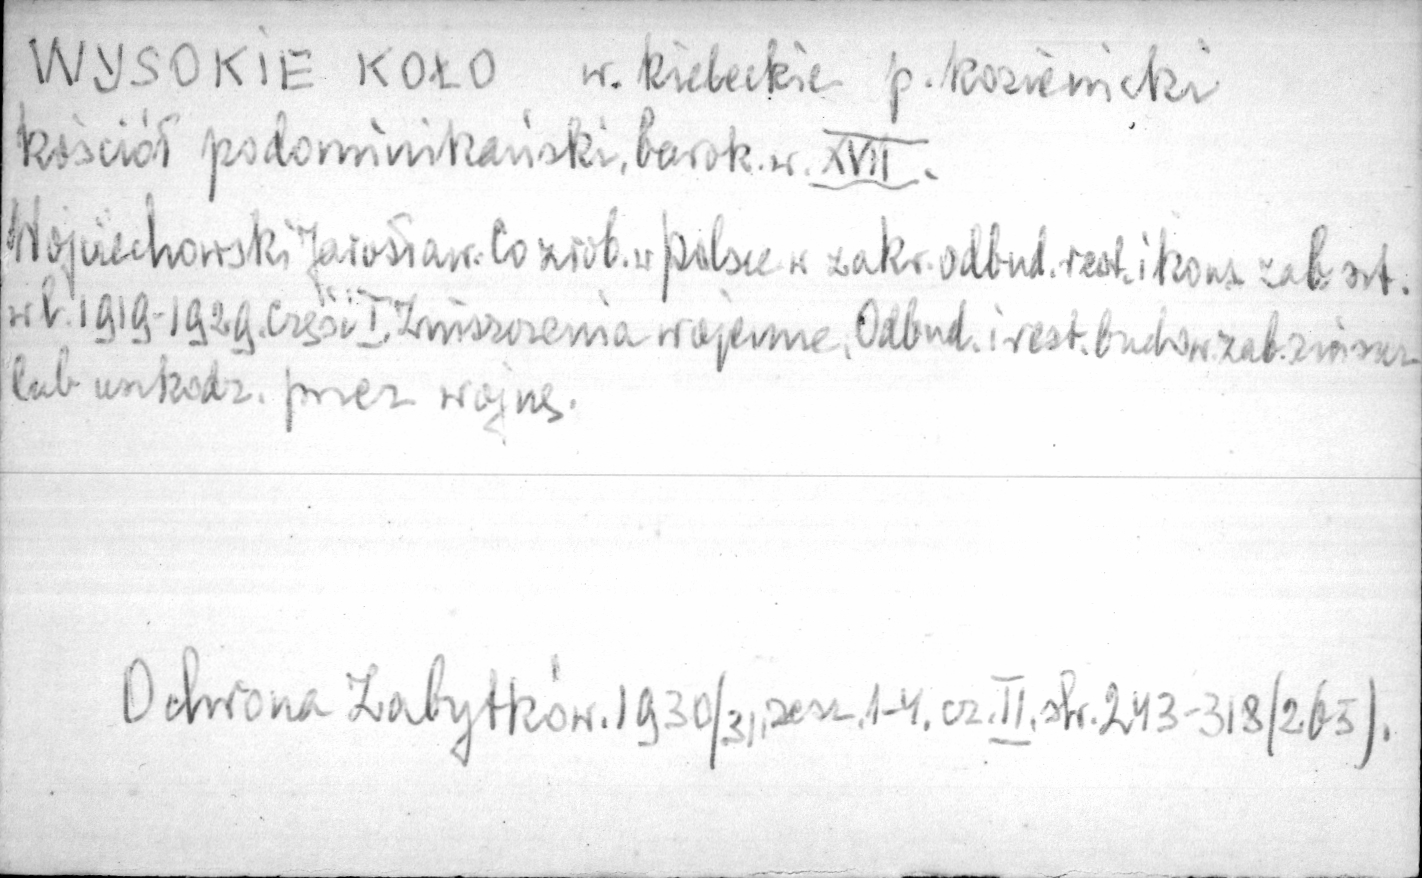 WYSOKIE KOŁO w. kieleckie p. kozienicki
kościół podominikański, barok. w. XVII.
Wojciechowski Jarosław. Co zrob. w Polsce w zakr. odbud. rest. i kons. zab. szt.
w l. 1919-1929. Część I. Zniszczenia wojenne. Odbud. i rest. budow. zab. zniszcz
lub uszkodz. przez wojnę.
Ochrona Zabytków. 1930/31, zesz. 1-4. cz. II. str. 243-318 (265).